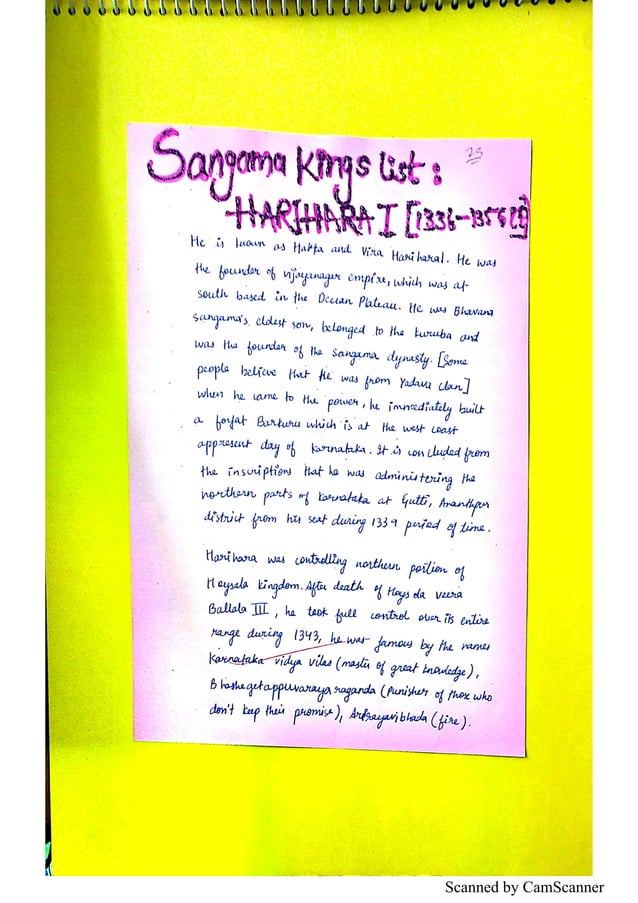 23
Sangama Kings list :
HARIHARA I [1336-1356
He is known as Hakka and Vira Hariharal. He was
the founder of vijayanagar empire, which was at
south based in the Deccan Plateau. He was Bhavana
Sangama's eldest son, belonged to the kuruba and
was the founder of the Sangama dynasty. [Some
people believe that he was from Yadava clan]
when he came to the power, he immediately built
a forfat Barkuru which is at the west coast
appresent day of Karnataka. It is concluded from
the inscriptions that he was administering the
northern parts of Karnataka at Gutti, Ananthpur
district from his seat during 1339 period of time.
Harihara was controlling northern portion of
Hoysala kingdom. After death of Hoysala veera
Ballala III, he took full control over its entire
range during 1343, he was famous by the names
Karnataka vidya vilas (master of great knowledge),
Bhashegetappuvarayaraganda (Punisher of those who
don't keep their promise), Arirayavibhada (fire).
Scanned by CamScanner